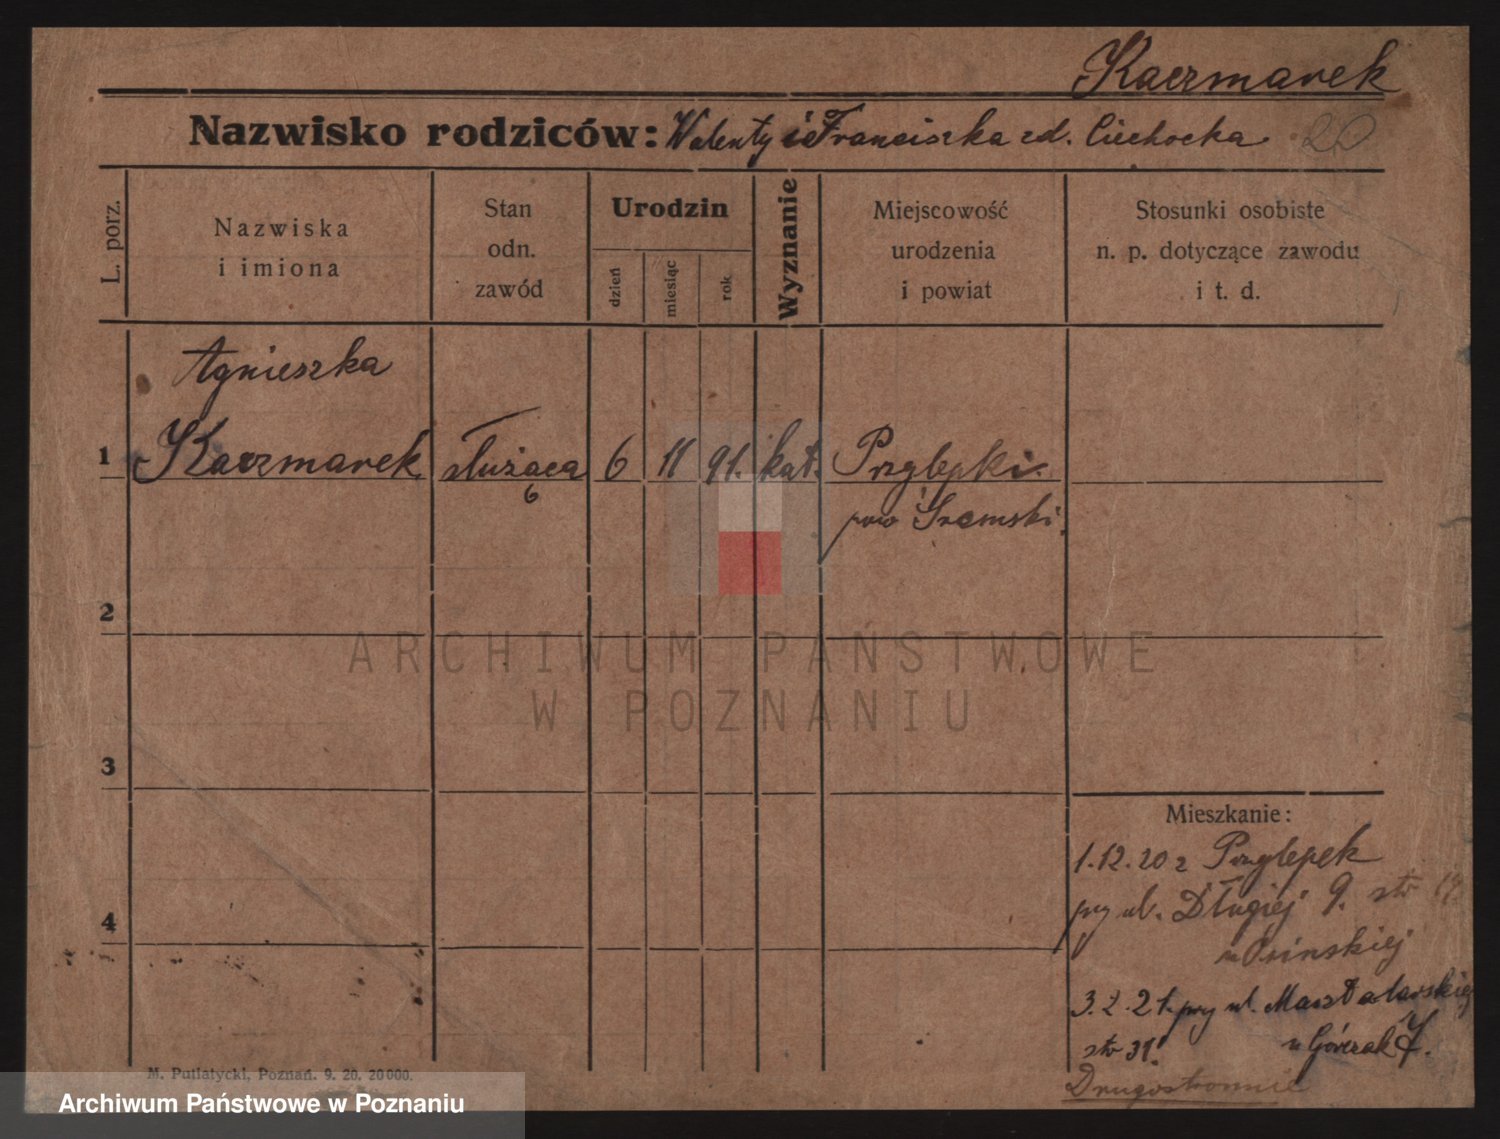 Kaczmarek
Nazwisko rodziców: Walenty i Franciszka zd. Ciechocka 20
L. porz.
Nazwiska
i imiona
Stan
odn.
zawód
Urodzin
dzień
miesiąc
rok
Wyznanie
Miejscowość
urodzenia
i powiat
Stosunki osobiste
n. p. dotyczące zawodu
i t. d.
Agnieszka
1 Kaczmarek służąca 6 11 91. kat. Przylepki.
6
pow Śremski.
2
ARCHIWUM PAŃSTWOWE
W POZNANIU
3
Mieszkanie:
1.12.20 z Przylepek
przy ul. Długiej 9. str
4
u Osinskiej
3.2.21. przy ul. Masztalarskiej
str 31. u Górczak F.
Drugostronnie
M. Putiatycki, Poznań. 9. 20. 20000.
Archiwum Państwowe w Poznaniu